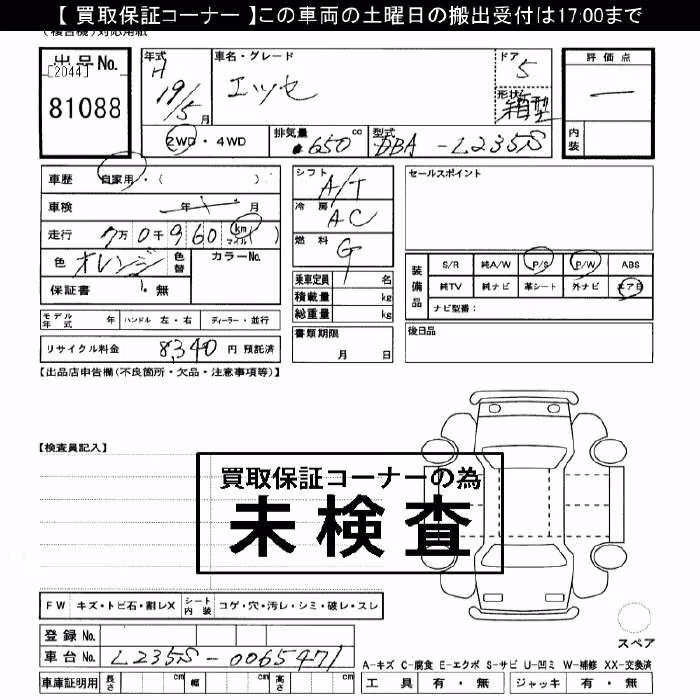 【 買取保証コーナー 】この車両の土曜日の搬出受付は17:00まで
(複合機)対応用紙
出品No. 年式 車名・グレード ドア 評価点
[2044] H エッセ 5 —
81088 19/5 月 形状 箱型
2WD・4WD 排気量 .650 cc 型式 DBA-L235S 内装
車歴 自家用・( ) シフト A/T セールスポイント
車検 年 月 冷房 AC
走行 7万0千960 km マイル( ) 燃料 G
色 オレンジ 色替 カラーNo. 乗車定員 名 装備品 S/R 純A/W P/S P/W ABS
保証書 無 積載量 kg 純TV 純ナビ 革シート 外ナビ エアB
総重量 kg ナビ型番:
モデル年式 年 ハンドル 左・右 ディーラー・並行 書類期限 後日品
リサイクル料金 8,340 円 預託済 月 日
【出品店申告欄(不良箇所・欠品・注意事項等)】
【検査員記入】
買取保証コーナーの為
未検査
FW キズ・トビ石・割レX シート内装 コゲ・穴・汚レ・シミ・破レ・スレ
スペア
登録No.
車台No. L235S-0065471
A-キズ C-腐食 E-エクボ S-サビ U-凹ミ W-補修 XX-交換済
車庫証明用 長さ cm 幅 cm 高さ cm 工具 有・無 ジャッキ 有・無